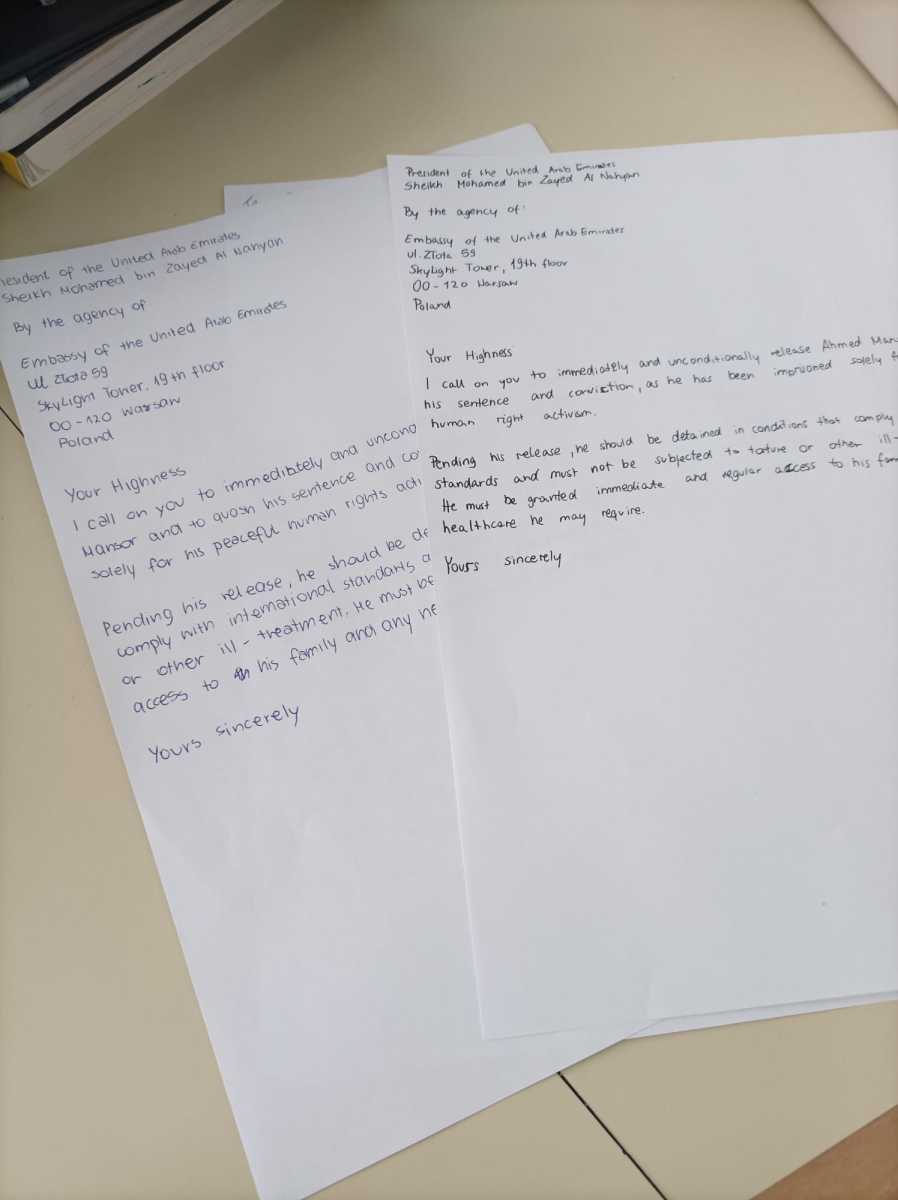 President of the United Arab Emirates
Sheikh Mohamed bin Zayed Al Nahyan
By the agency of
Embassy of the United Arab Emirates
Ul Złota 59
Skylight Tower, 19th floor
00-120 Warsaw
Poland
Your Highness
I call on you to immediately and uncono
Mansor and to quosh his sentence and co
solely for his peaceful human rights acti
Pending his release, he should be de
comply with international standarts a
or other ill-treatment. He must be
access to his family and any ne
Yours sincerely
To
President of the United Arab Emirates
Sheikh Mohamed bin Zayed Al Nahyan
By the agency of:
Embassy of the United Arab Emirates
ul. Złota 59
Skylight Tower, 19th floor
00-120 Warsaw
Poland
Your Highness
I call on you to immediately and unconditionally release Ahmed Man
his sentence and conviction, as he has been imprisoned solely f
human right activism.
Pending his release, he should be detained in conditions that comply
standards and must not be subjected to torture or other ill-
He must be granted immediate and regular access to his fam
healthcare he may require.
Yours sincerely